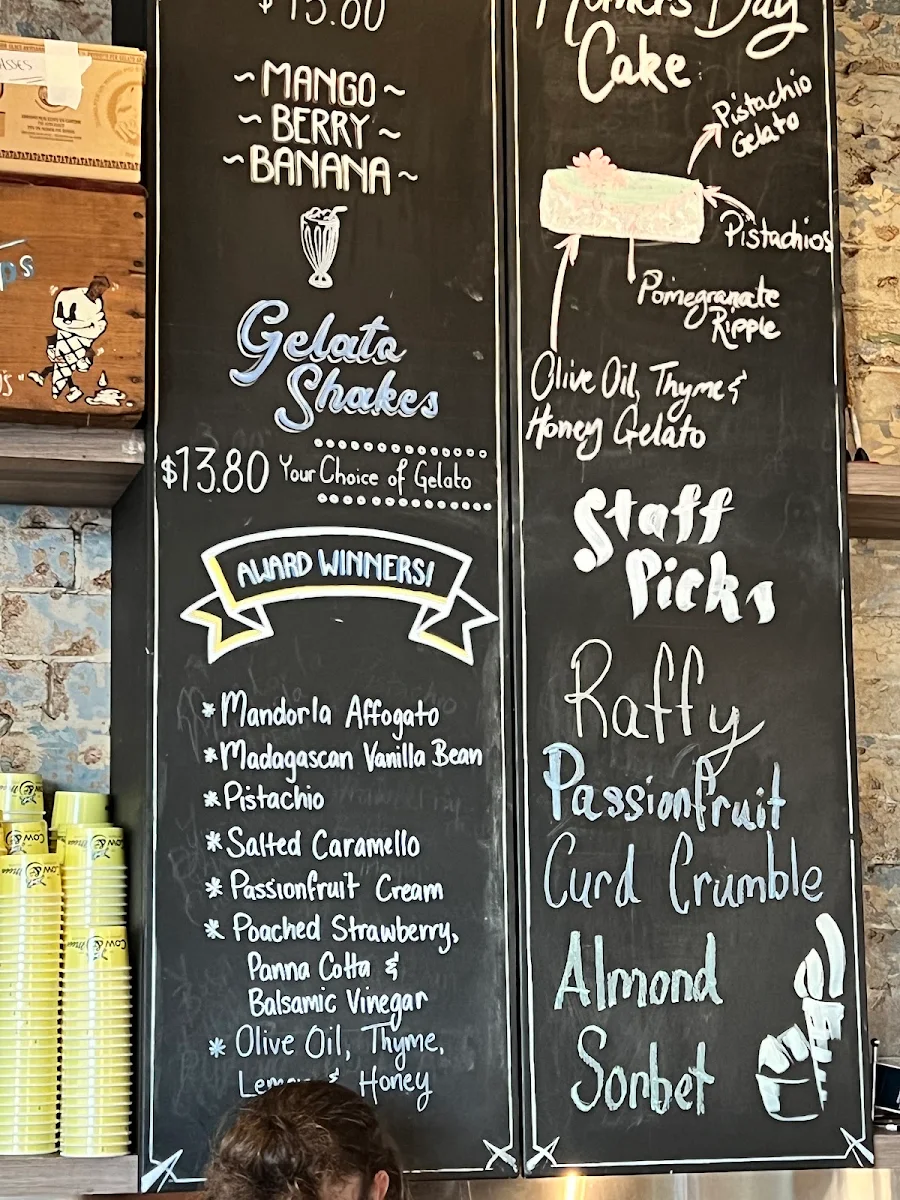 $13.80
~MANGO~
~BERRY~
~BANANA~
Gelato
Shakes
$13.80 Your Choice of Gelato
AWARD WINNERS!
*Mandorla Affogato
*Madagascan Vanilla Bean
*Pistachio
*Salted Caramello
*Passionfruit Cream
*Poached Strawberry,
Panna Cotta &
Balsamic Vinegar
*Olive Oil, Thyme,
& Honey
Day
Cake
Pistachio
Gelato
Pistachios
Pomegranate
Ripple
Olive Oil, Thyme &
Honey Gelato
Staff
Picks
Raffy
Passionfruit
Curd Crumble
Almond
Sorbet
Cow &
Cow &